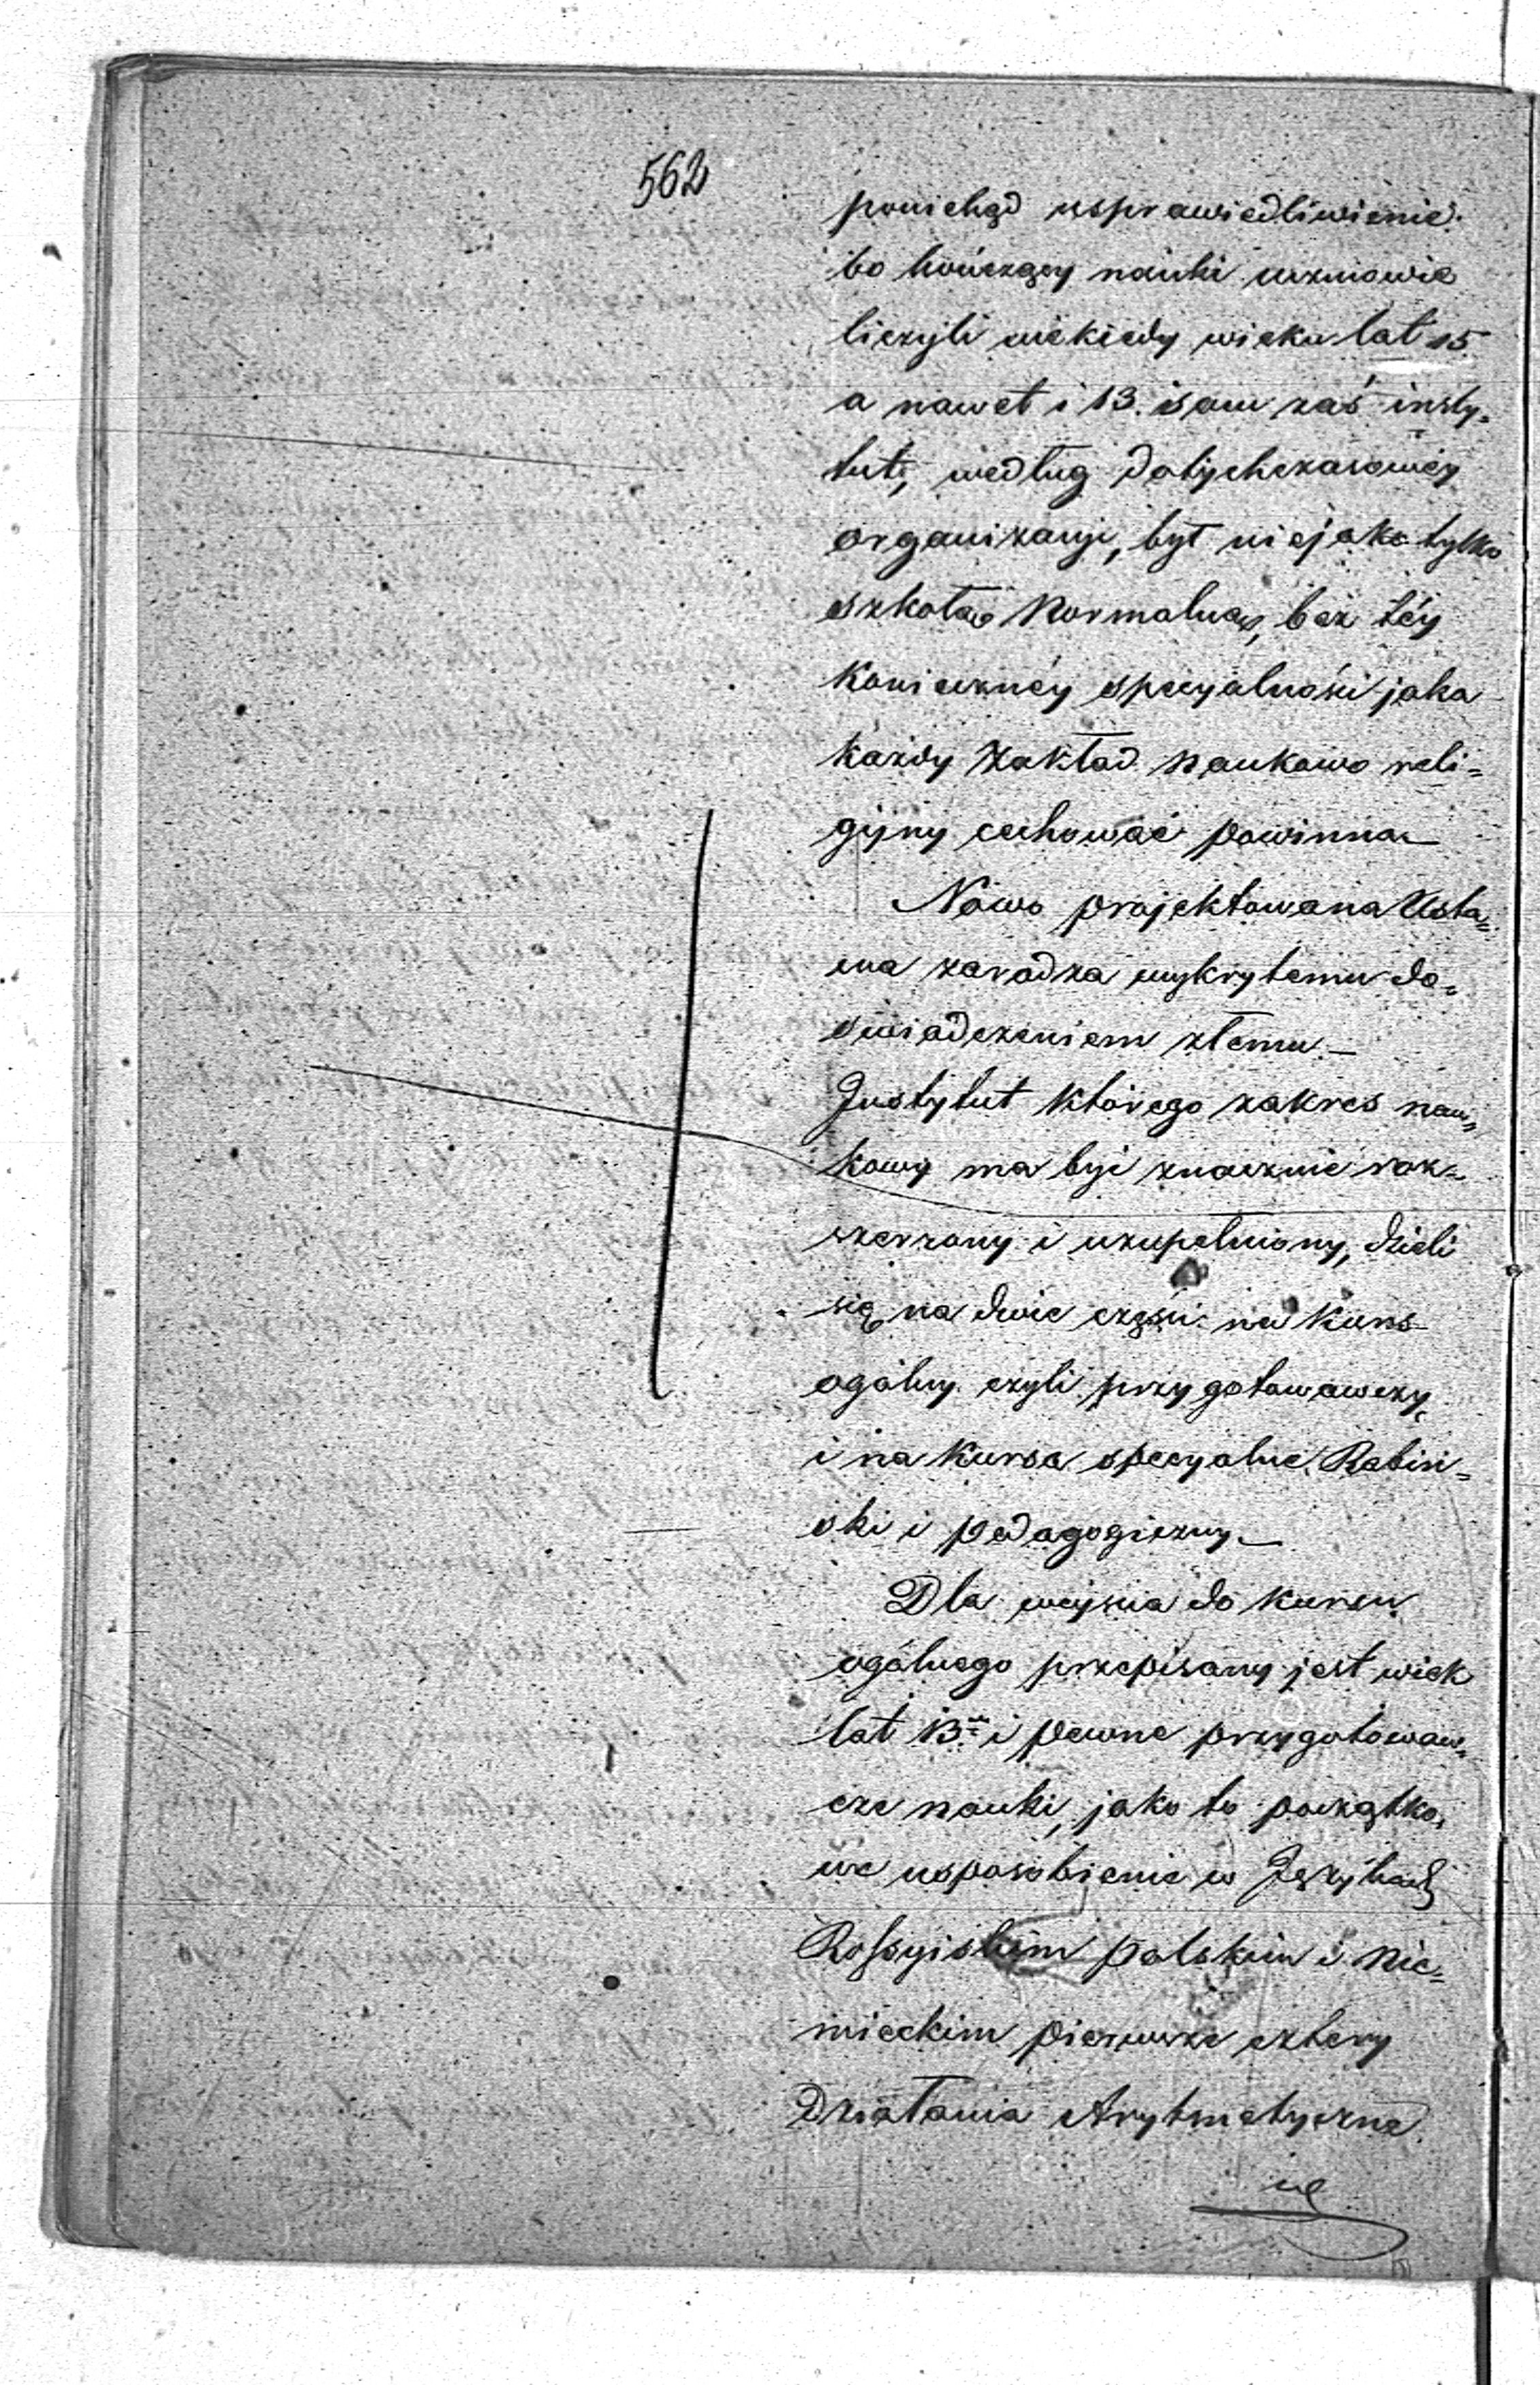 562
poniekąd usprawiedliwienie.
bo kończący nauki uczniowie
liczyli niekiedy wieku lat 15
a nawet i 13. sam zaś insty=
tut, według dotychczasowéy
organizacyi, był niejako tylko
szkołą Normalną, bez téy
Koniecznéy specyalności jaka
każdy Zakład Naukowo reli=
gijny cechować powinna—
Nowo projektowana Usta=
wa zaradza wykrytemu do=
świadczeniem złemu.—
Instytut którego zakres nau=
kowy ma być znacznie roz=
szerzony i uzupełniony, dzieli
się na dwie części: na Kurs
ogólny czyli przygotowawczy,
i na Kursa specyalne, Rabin=
ski i pedagogiczny.—
Dla wejscia do Kursu
ogólnego przepisany jest wiek
lat 13tu i pewne przygotowaw=
cze nauki, jako to początko=
we usposobienie w Językach
Rossyiskim polskim i Nie=
mieckim pierwsze cztery
Działania Arytmetyczne